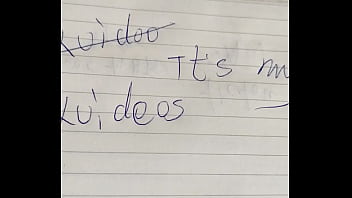 Xvidoo
It's
Xvideos